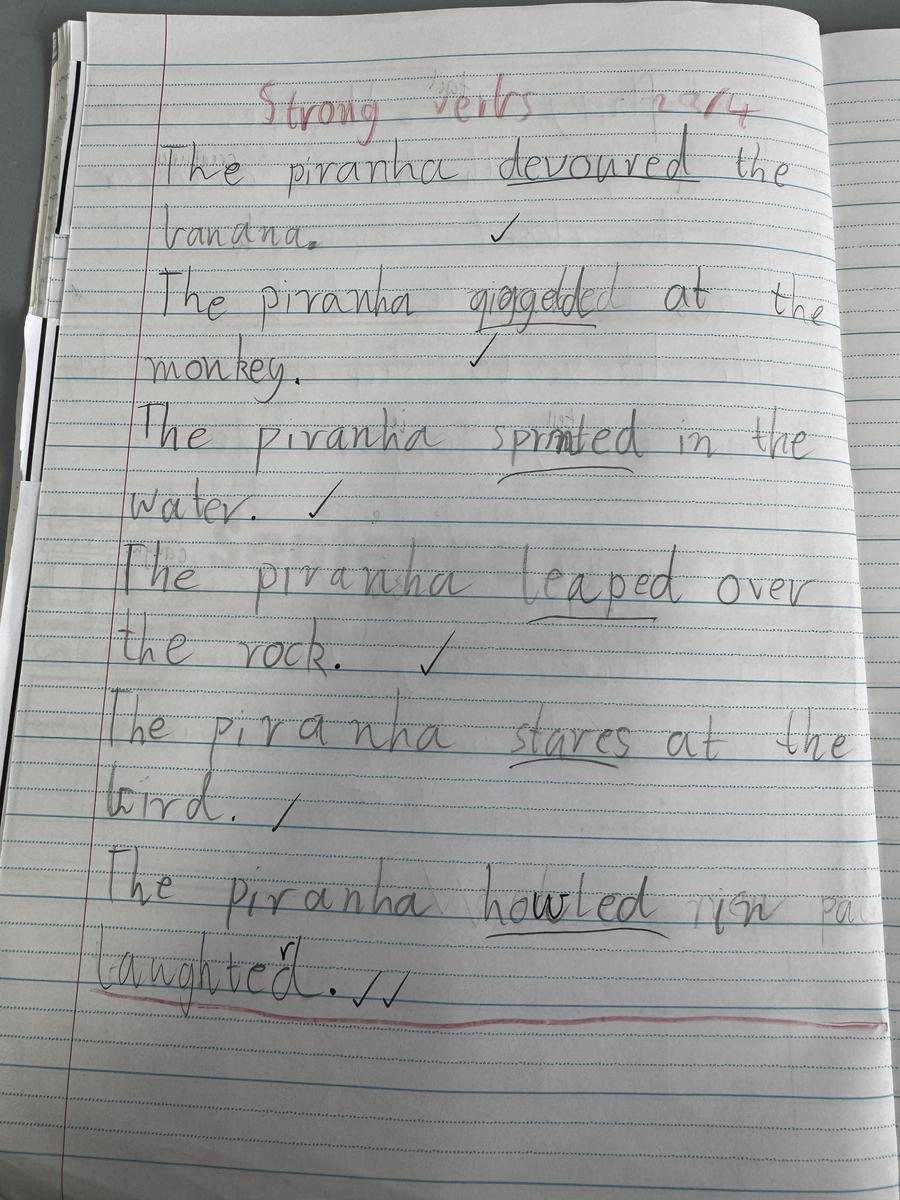 Strong verbs 22/4
The piranha devoured the
banana.
The piranha giggeldded at the
monkey.
The piranha sprinted in the
water.
The piranha leaped over
the rock.
The piranha stares at the
bird.
The piranha howled in
laughter.